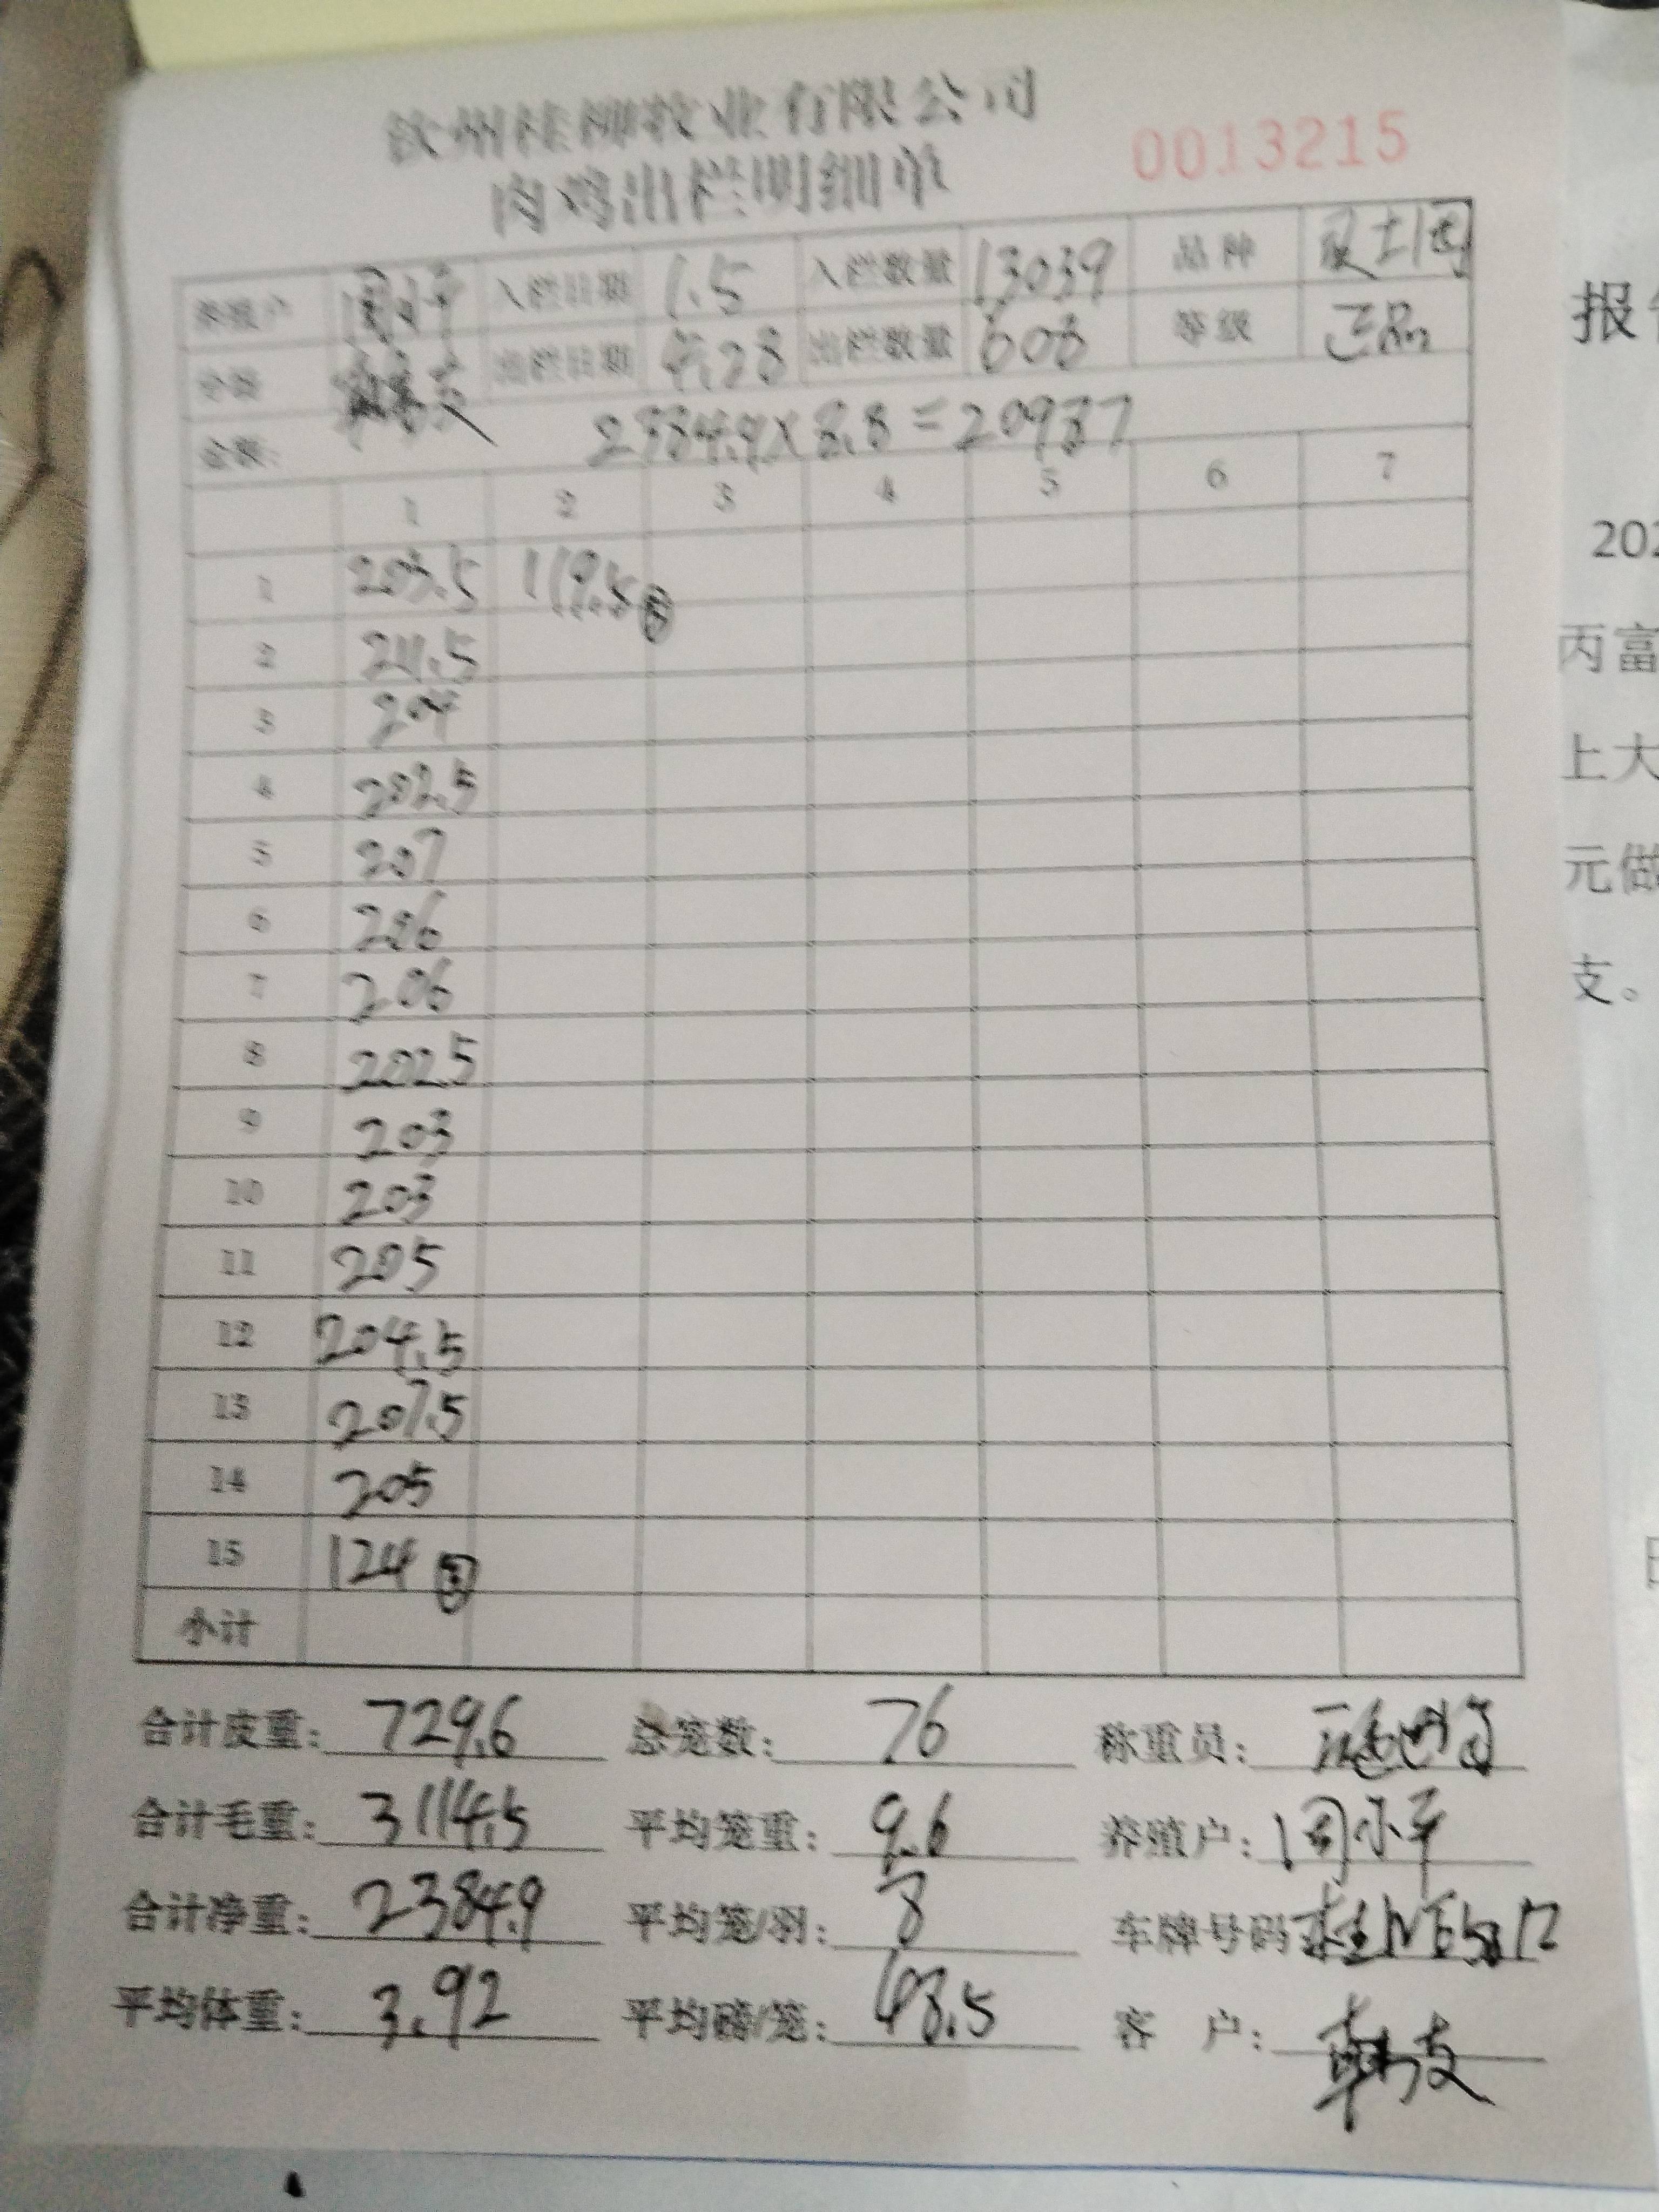 钦州桂柳牧业有限公司
肉鸡出栏明细单
0013215
养殖户 周小平 入栏日期 1.5 入栏数量 13039 品种
客户 出栏日期 4.28 出栏数量 608 等级 正品
金额: 2384.9×8.8=20987
1 2 3 4 5 6 7
1 203.5 119.5 ③
2 211.5
3 204
4 202.5
5 207
6 206
7 206
8 202.5
9 203
10 203
11 205
12 204.5
13 207.5
14 205
15 124 ③
小计
合计皮重: 729.6 总笼数: 76 称重员:
合计毛重: 3114.5 平均笼重: 9.6 养殖户: 周小平
合计净重: 2384.9 平均笼/羽: 8 车牌号码
平均体重: 3.92 平均磅/笼: 48.5 客 户:
报
202
丙富
上大
元做
支。